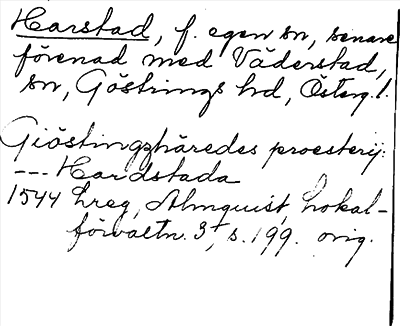 Harstad, f. egen sn, senare
förenad med Väderstad,
sn, Göstrings hd, Österg. l.
Giöstingzhäredes proesterij:
--- Hardstada
1544 Lreg, Almquist, Lokal-
förvaltn. 3, s. 199. orig.